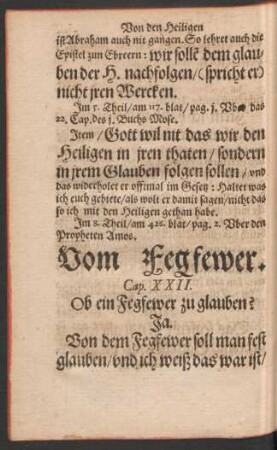 Von den Heiligen
ist Abraham auch nit gangen. So lehret auch die
Epistel zun Ebreern: wir sollẽ dem glau-
ben der H. nachfolgen / (spricht er)
nicht jren Wercken.
Jm 5. Theil / am 117. blat / pag. 1. Vber das
22. Cap. des 1. Buchs Mose.
Jtem / Gott wil nit das wir den
Heiligen in jren thaten / sondern
in jrem Glauben folgen sollen / vnd
das widerholet er offtmal im Gesetz: Haltet was
ich euch gebiete / als wolt er damit sagen / nicht das
so ich mit den Heiligen gethan habe.
Jm 8. Theil / am 422. blat / pag. 2. Vber den
Propheten Amos.
Vom Fegfewer.
Cap. XXII.
Ob ein Fegfewer zu glauben?
Ja.
Von dem Fegfewer soll man fest
glauben / vnd ich weiß das war ist /